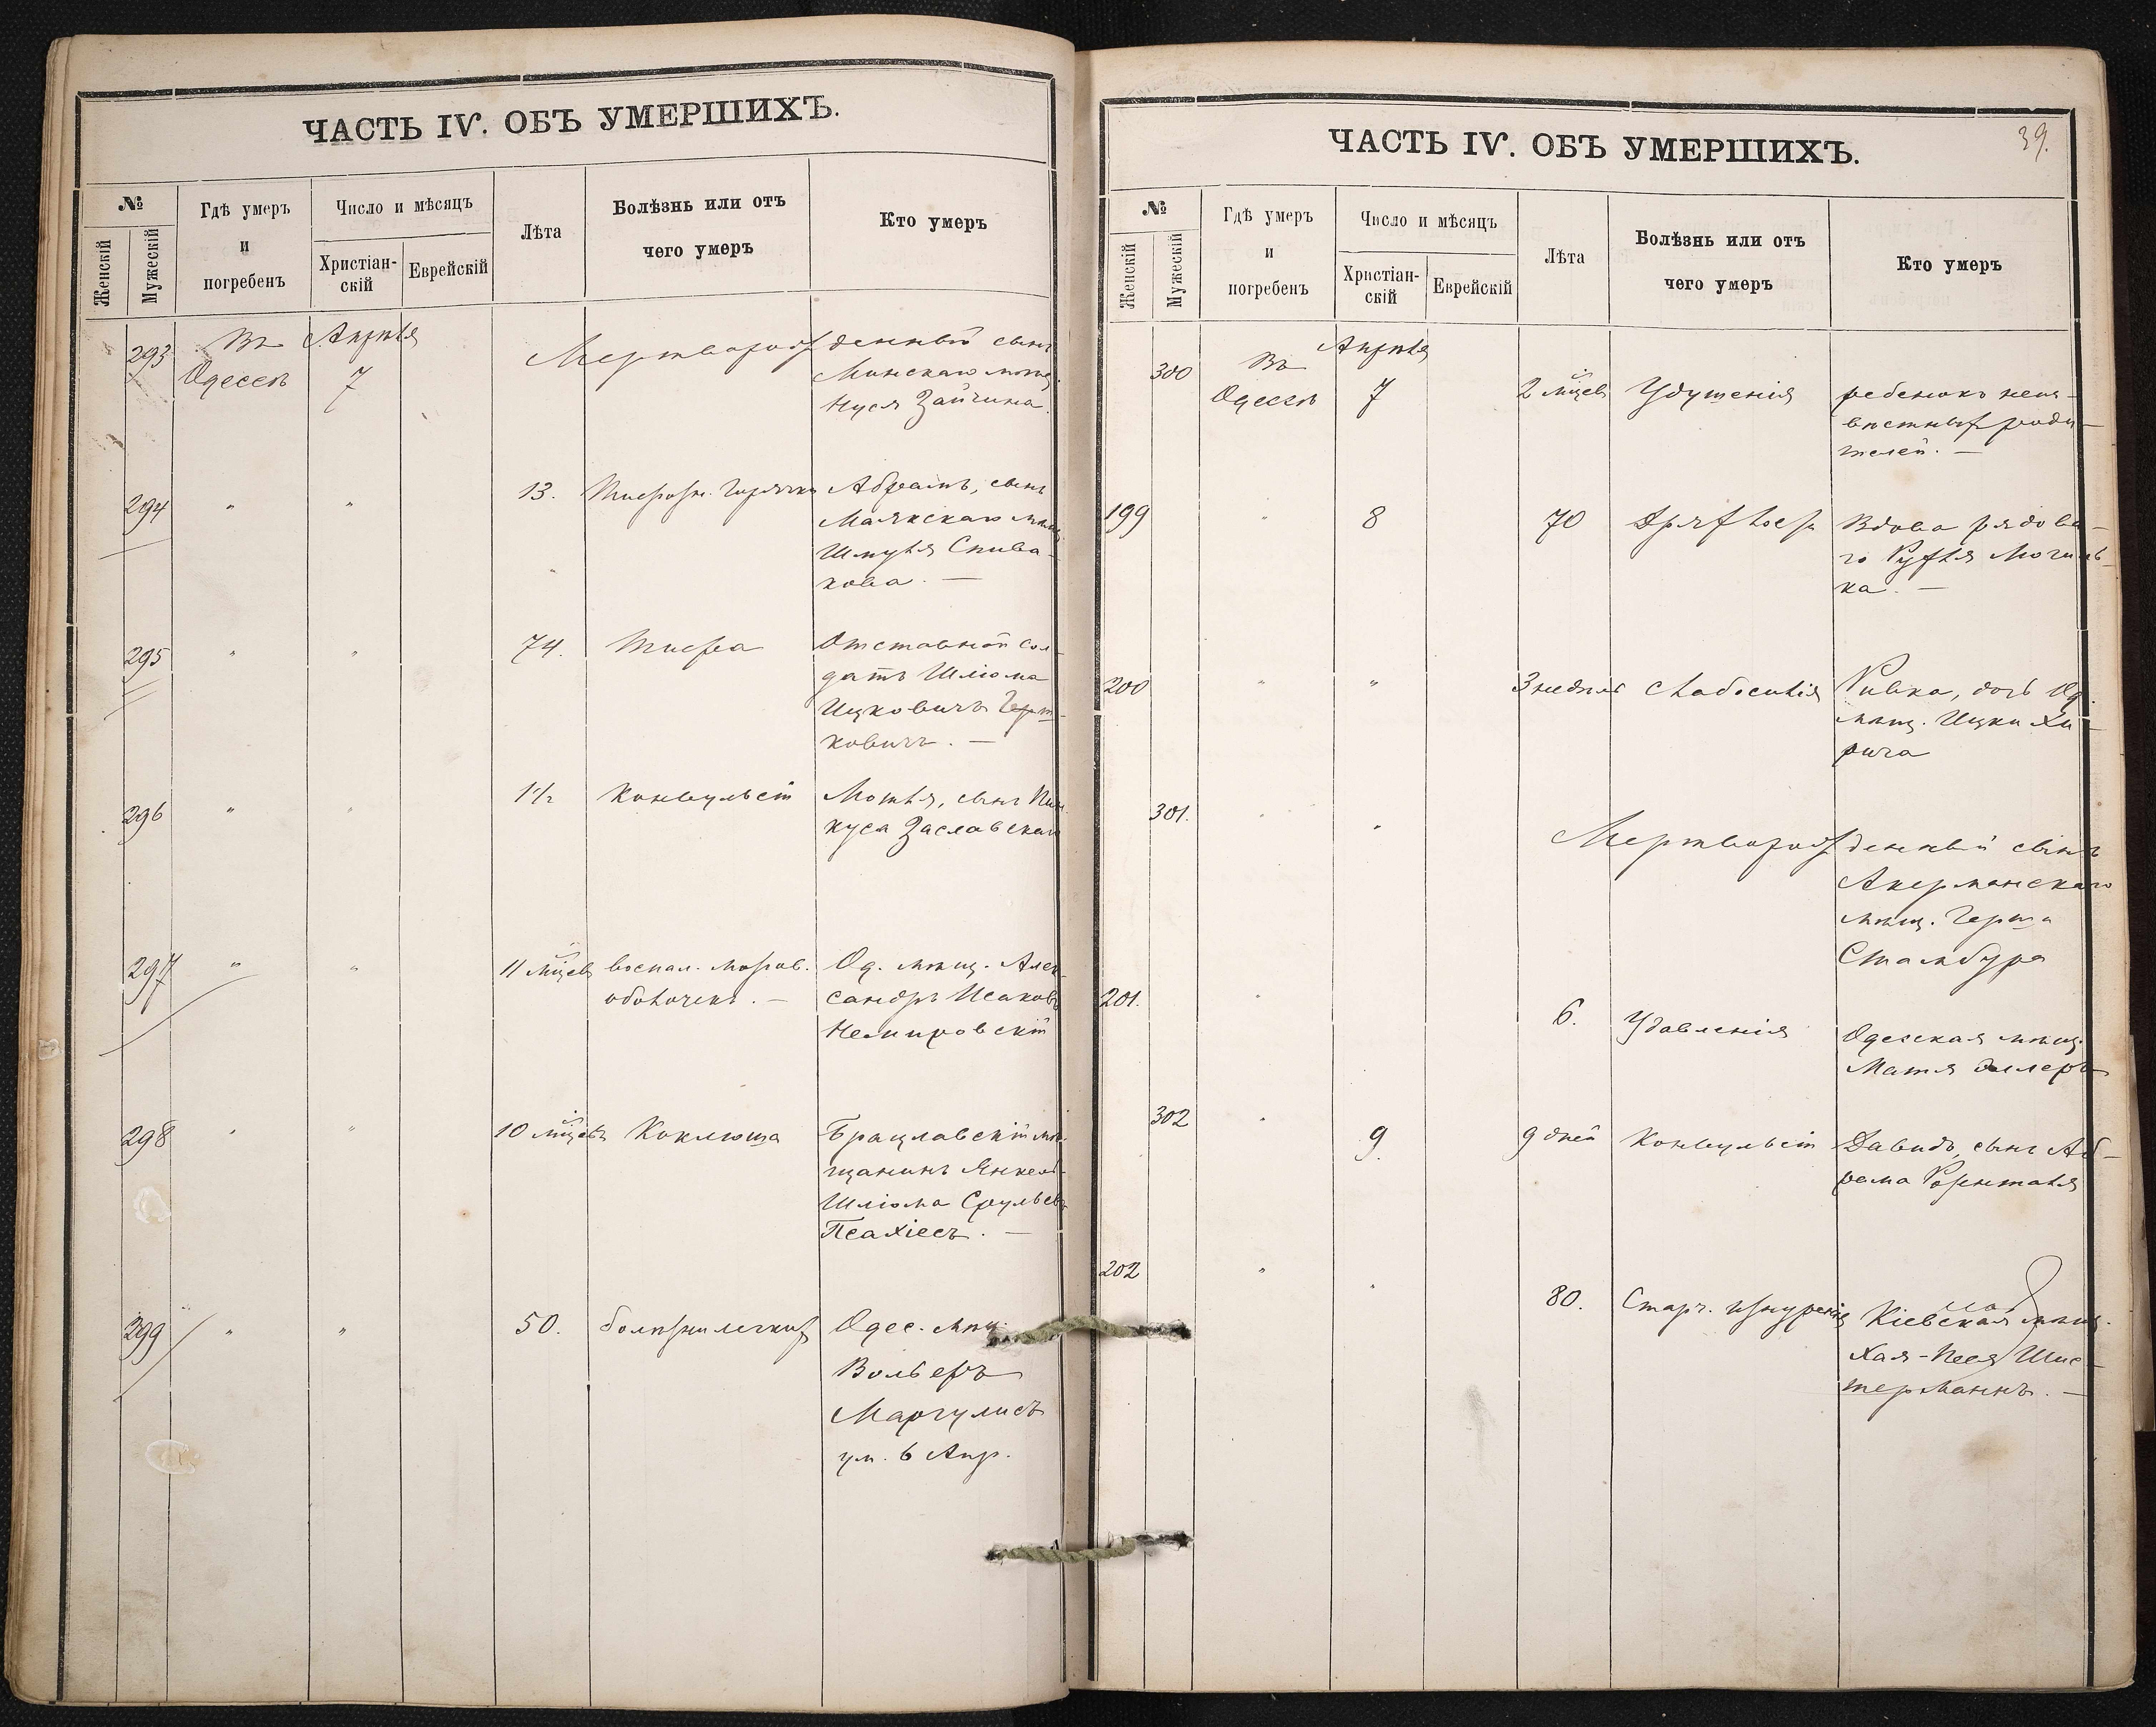 ЧАСТЬ IV. ОБЪ УМЕРШИХЪ.
№
Женскій
Мужескій
Гдѣ умеръ
и
погребенъ
Число и мѣсяцъ
Христіан-
скій
Еврейскій
Лѣта
Болѣзнь или отъ
чего умеръ
Кто умеръ
293 Въ Апрѣля Мертворожденный сынъ
Одессѣ 7 Минскаго мѣщ.
Нуся Зайчика.
294 " " 13. Тифозн. Горячка Абрамъ, сынъ
Маякскаго мѣщ.
Шмуля Спива-
кова. —
295 " " 74. Тифа Отставной сол-
датъ Шліома
Ицковичъ Герш-
ковичъ. —
296 " " 1½ Конвульсій Мотя, сынъ Пин-
куса Заславскаго
297 " " 11 мѣцевъ воспал. мозгов. Од. мѣщ. Алек-
оболочекъ. — сандръ Исаковъ
Немировскій
298 " " 10 мѣцевъ Коклюша Брацлавскій мѣ-
щанинъ Янкель-
Шліома Срульевъ
Псахіесъ. —
299 " " 50. болѣзни легкихъ Одес. мѣщ.
Вольфъ
Маргулисъ
ум. 6 Апр.
ЧАСТЬ IV. ОБЪ УМЕРШИХЪ.
39.
№
Женскій
Мужескій
Гдѣ умеръ
и
погребенъ
Число и мѣсяцъ
Христіан-
скій
Еврейскій
Лѣта
Болѣзнь или отъ
чего умеръ
Кто умеръ
300 Въ Апрѣля
Одессѣ 7 2 мѣцевъ Удушенія ребенокъ неиз-
вѣстныхъ роди-
телей. —
199 " 8 70 Дряхлость Вдова рядова-
го Рухля Могиль-
ка. —
200 " " 3 недѣли слабосилія Ривка, дочь Од.
мѣщ. Ицки Хи-
рича
301. " " Мертворожденный сынъ
Акерманскаго
мѣщ. Герша
Стамбура
201. " 6. Удавленія Одесская мѣщ.
Матя
302 " 9. 9 дней Конвульсій Давидъ, сынъ Аб-
рама Розенталя
202 " " 80. Старч. изнуренія Кіевская мѣщ.
Хая-Песя Шис-
терманъ. —